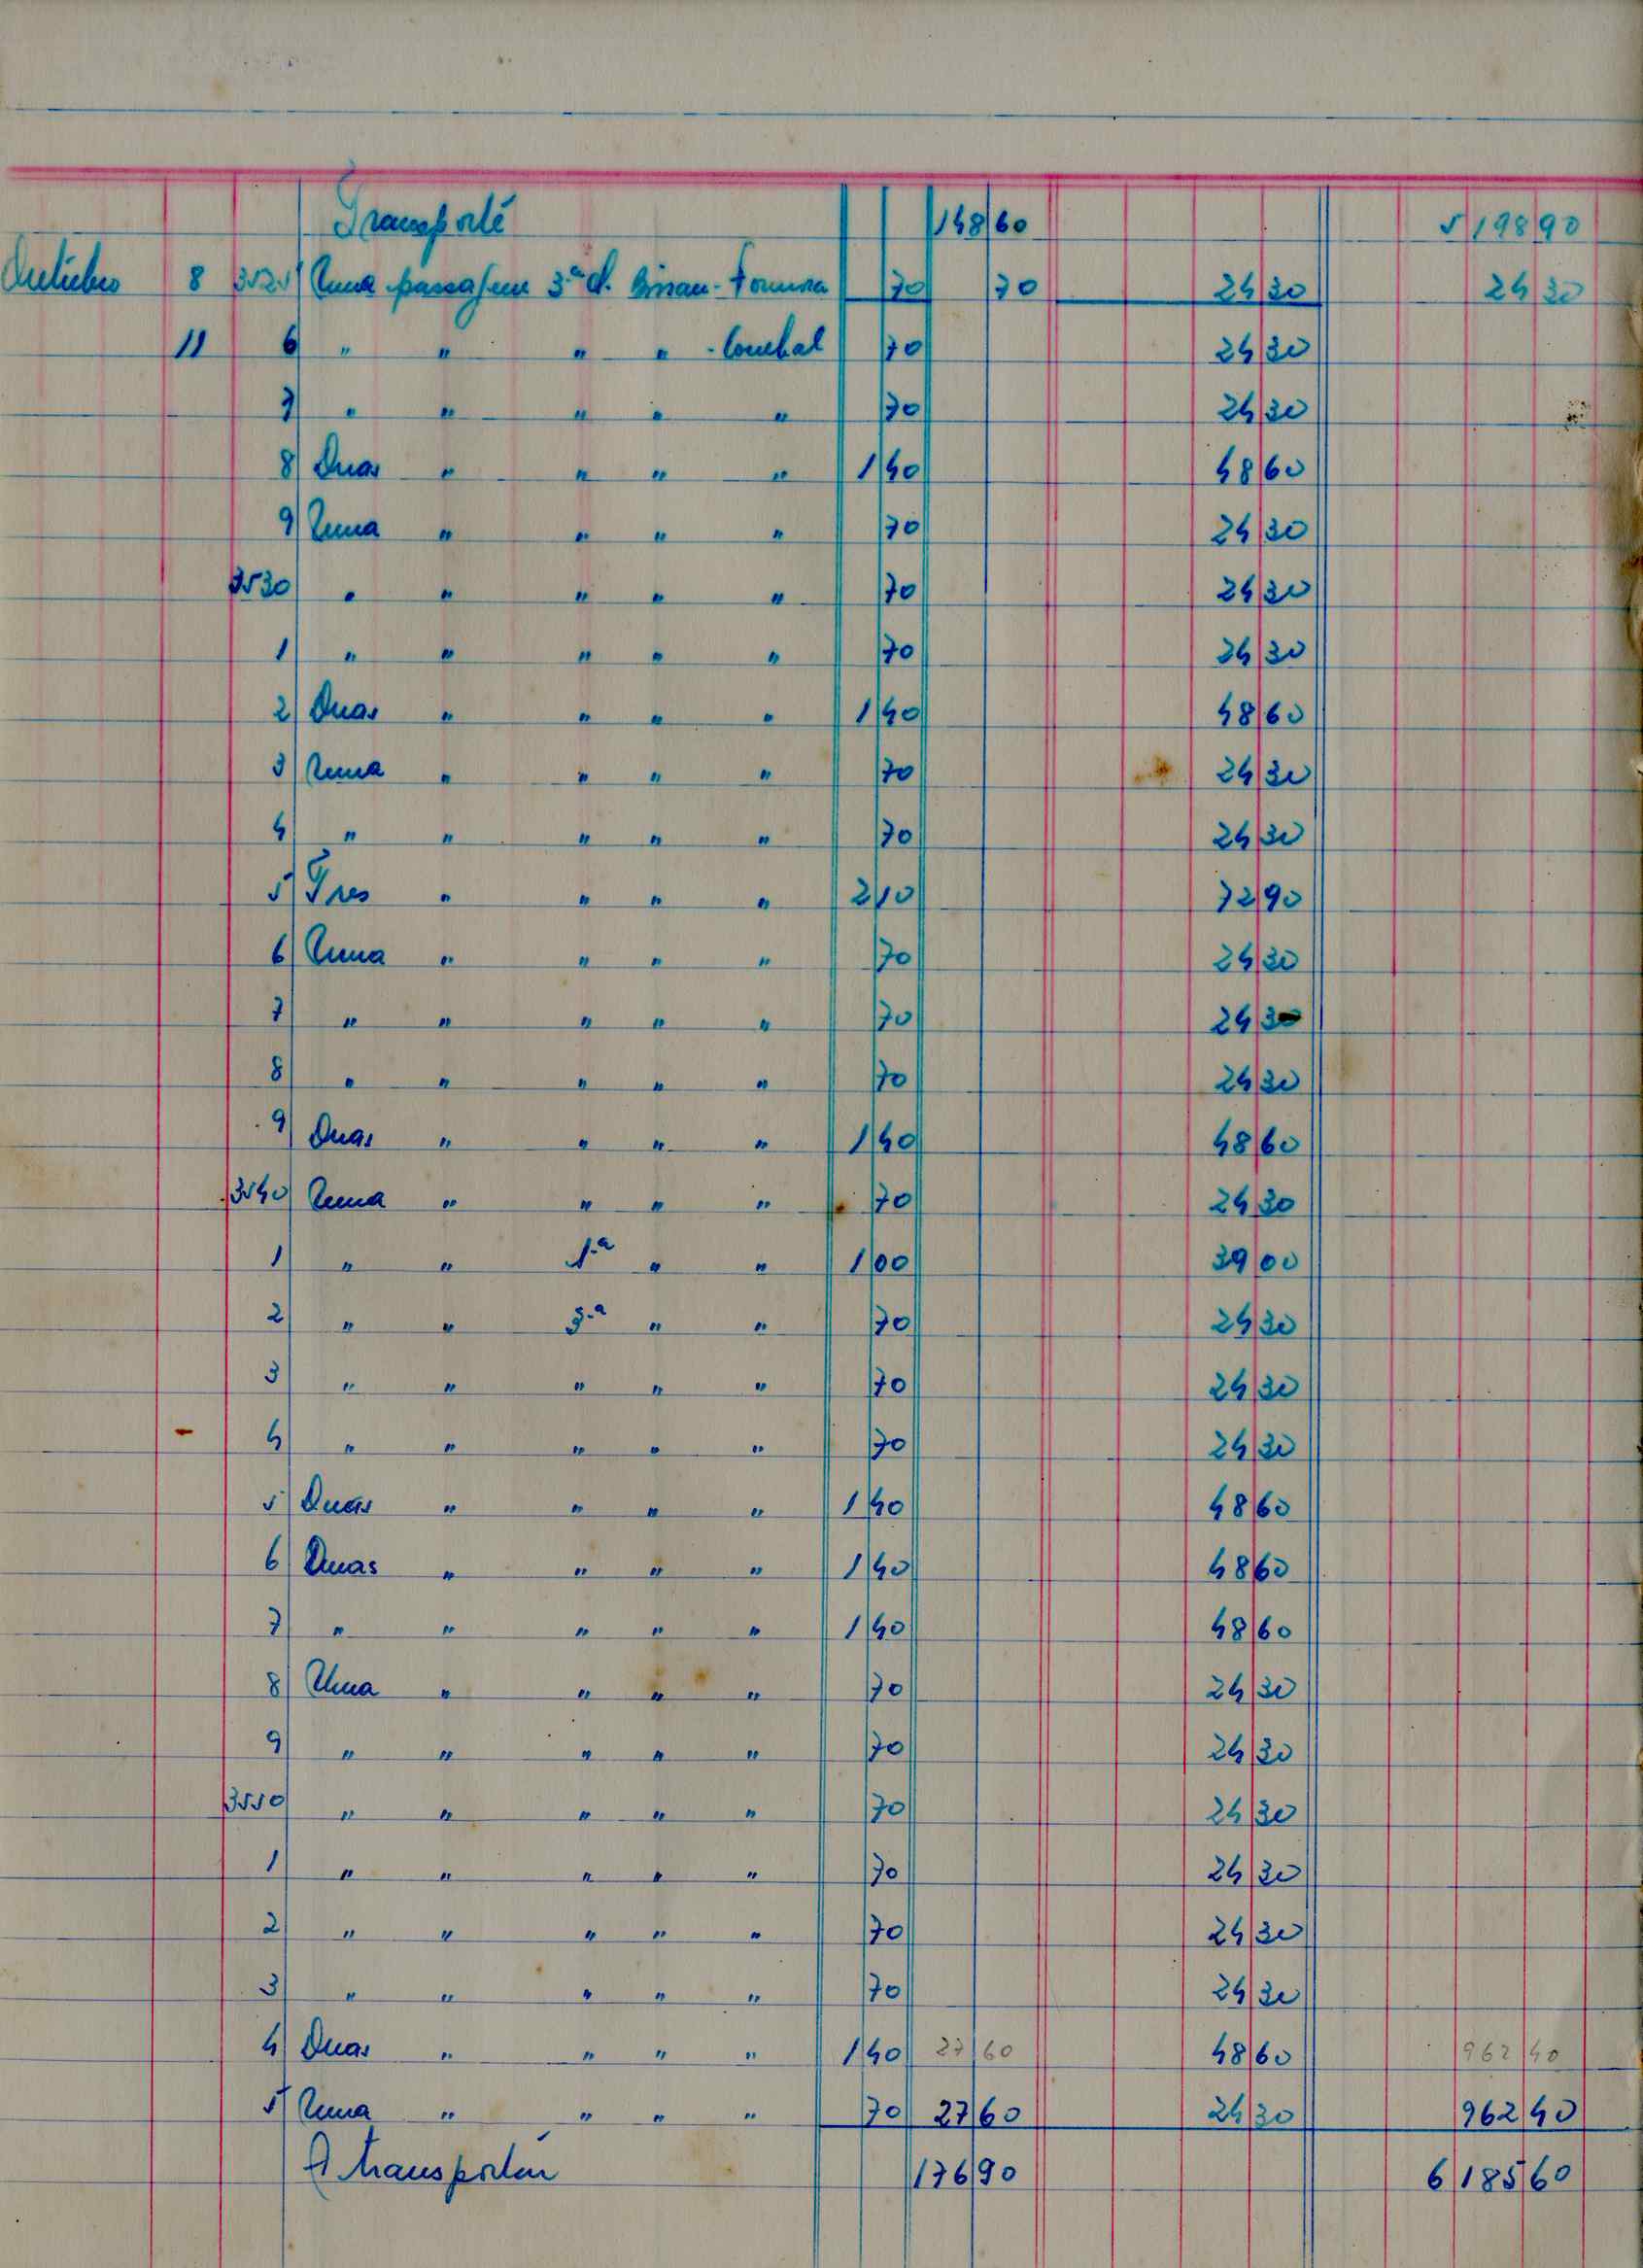 Transporte 148 60 5 198 90
Outubro 8 3525 Uma passagem 3.ª cl. Bissau-Formosa 70 70 24 30 24 30
11 6 " " " " - Corubal 70 24 30
7 " " " " " 70 24 30
8 Duas " " " " 1 40 48 60
9 Uma " " " " 70 24 30
3530 " " " " " 70 24 30
1 " " " " " 70 24 30
2 Duas " " " " 1 40 48 60
3 Uma " " " " 70 24 30
4 " " " " " 70 24 30
5 Tres " " " " 2 10 72 90
6 Uma " " " " 70 24 30
7 " " " " " 70 24 30
8 " " " " " 70 24 30
9 Duas " " " " 1 40 48 60
3540 Uma " " " " 70 24 30
1 " " 1.ª " " 1 00 39 00
2 " " 3.ª " " 70 24 30
3 " " " " " 70 24 30
4 " " " " " 70 24 30
5 Duas " " " " 1 40 48 60
6 Duas " " " " 1 40 48 60
7 " " " " " 1 40 48 60
8 Uma " " " " 70 24 30
9 " " " " " 70 24 30
3550 " " " " " 70 24 30
1 " " " " " 70 24 30
2 " " " " " 70 24 30
3 " " " " " 70 24 30
4 Duas " " " " 1 40 27 60 48 60 962 40
5 Uma " " " " 70 27 60 24 30 962 40
A transportar 176 90 6 185 60